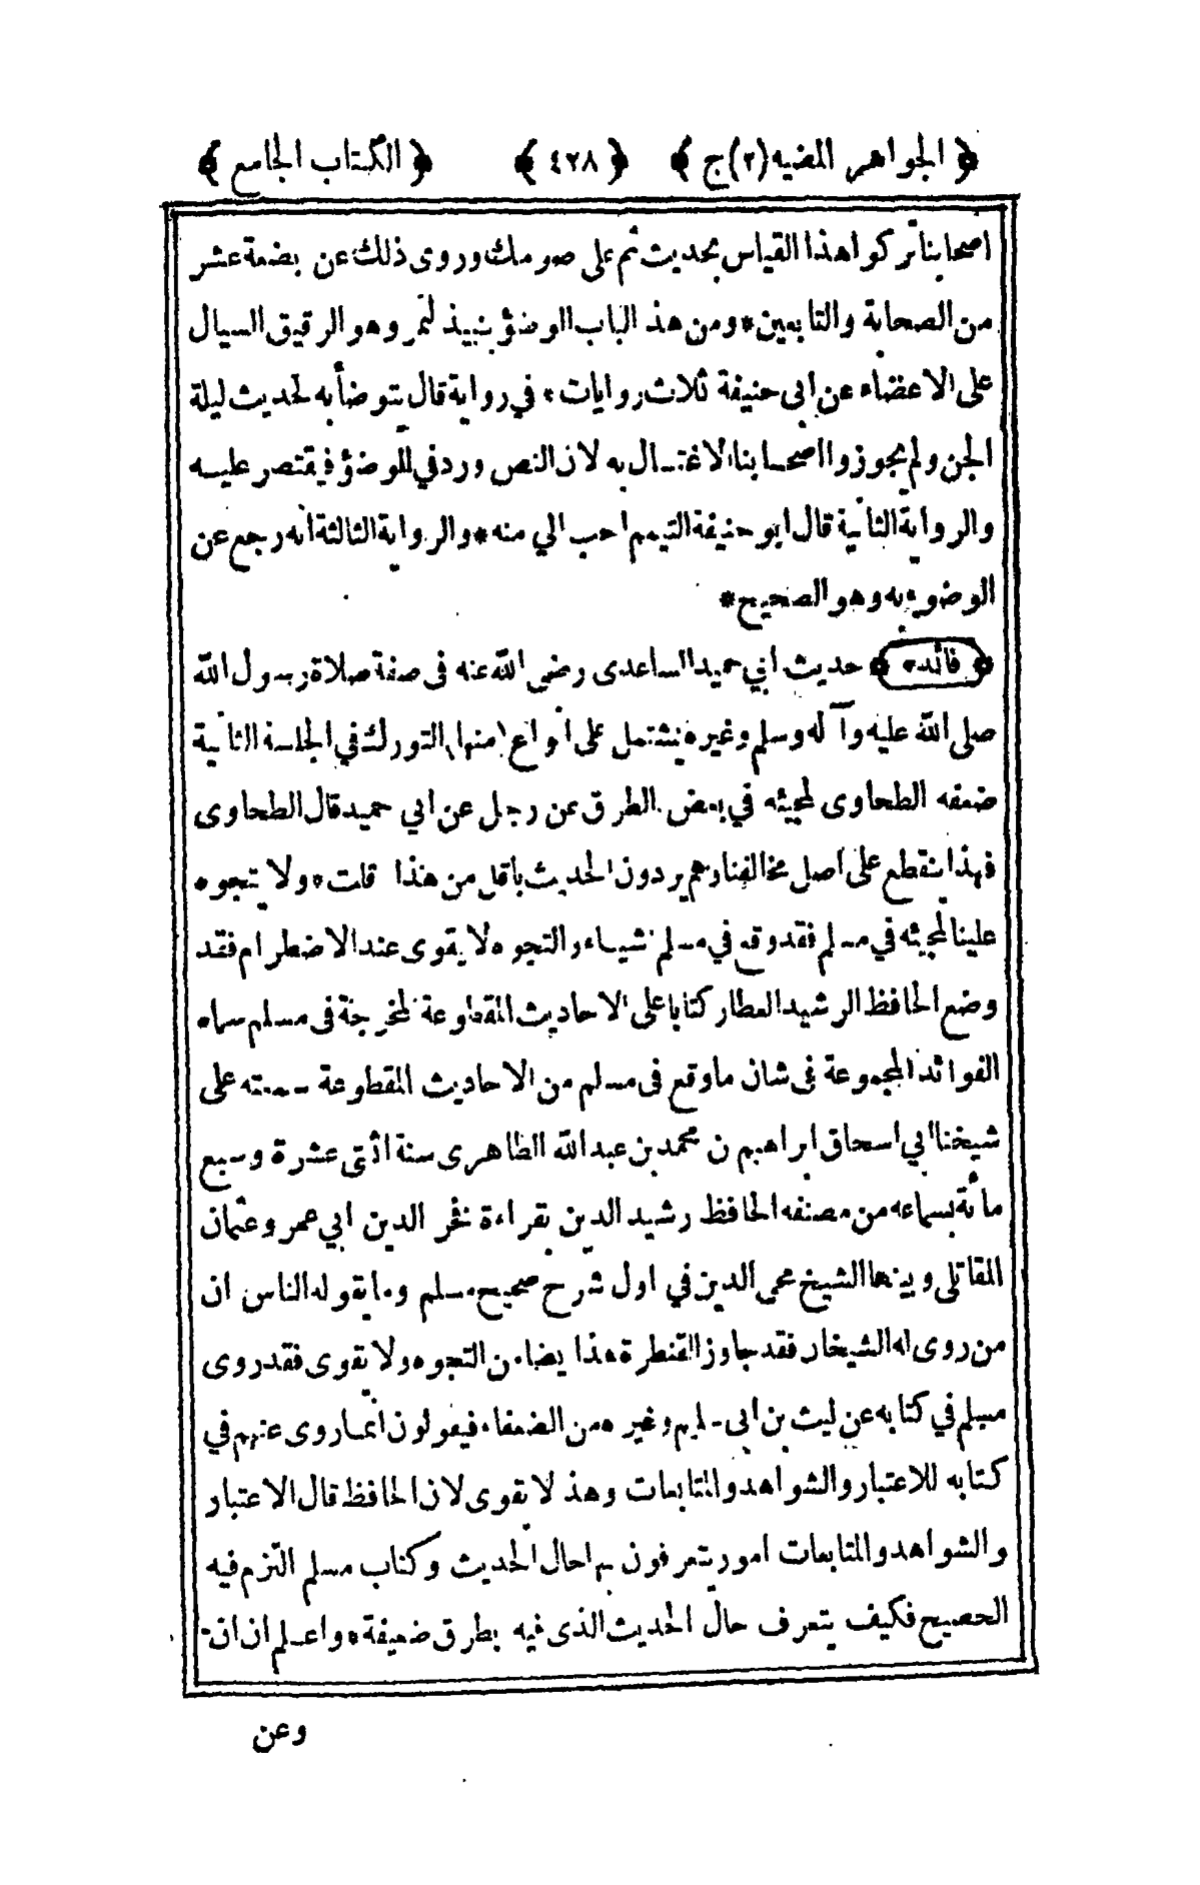 ﴿ الجواهر المضيه (٢) ج ﴾ ﴿ ٤٢٨ ﴾ ﴿ الكتاب الجامع ﴾
اصحابنا تركوا هذا القياس بحديث ثم على صومك وروى ذلك عن بضعة عشر
من الصحابة والتابعين * ومن هذ الباب الوضؤ بنبيذ لتمر وهو الرقيق السيال
على الاعضاء عن ابى حنيفة ثلاث روايات * في رواية قال يتوضأ به لحديث ليلة
الجن ولم يجوزوا اصحابنا الاغتسال به لان النص ورد في للوضؤ فيقتصر عليه
والرواية الثانية قال ابو حنيفة التيمم احب الي منه * والرواية الثالثة انه رجع عن
الوضوء به وهو الصحيح *
﴿ فائده ﴾ حديث ابي حميد الساعدى رضى الله عنه فى صفة صلاة رسول الله
صلى الله عليه وآله وسلم وغيره يشتمل على انواع منها التورك في الجلسة الثانية
ضعفه الطحاوى لمجيئه في بعض الطرق عن رجل عن ابي حميد قال الطحاوى
فهذا ينقطع على اصل مخالفنا وهم يردون الحديث باقل من هذا قلت * ولا يتجوه
علينا لمجيئه في مسلم فقد وقع في مسلم شياء والتجوه لا يقوى عند الاضطرام فقد
وضع الحافظ الرشيد العطار كتابا على الاحاديث المقطوعة لمخرجة فى مسلم سماه
الفوائد المجموعة فى شان ما وقع فى مسلم من الاحاديث المقطوعة سمعته على
شيخنا ابي اسحاق ابراهيم ن محمد بن عبد الله الظاهرى سنة اثنتى عشرة وسبع
مائة بسماعه من مصنفه الحافظ رشيد الدين بقراءة فخر الدين ابي عمر وعثمان
المقاتلى وبينها الشيخ محى الدين في اول شرح صحيح مسلم وما يقوله الناس ان
من روى له الشيخان فقد جاوز القنطرة هذا يضا من التجوه ولا يقوى فقد روى
مسلم في كتابه عن ليث بن ابى سليم وغيره من الضعفاء فيقولون انما روى عنهم في
كتابه للاعتبار والشواهد والمتابعات وهذ لا يقوى لان الحافظ قال الاعتبار
والشواهد والمتابعات امور يتعرفون بها حال الحديث وكتاب مسلم التزم فيه
الحصيح فكيف يتعرف حال الحديث الذى فيه بطرق ضعيفة * واعلم ان ان
وعن